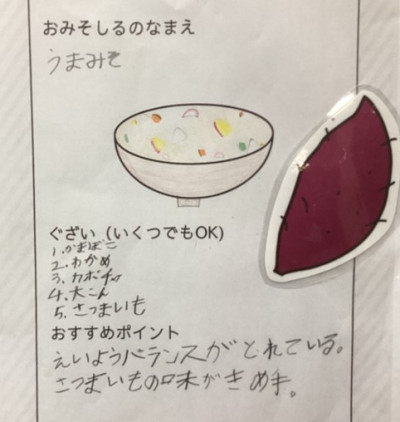 おみそしるのなまえ
うまみそ
ぐざい（いくつでもOK）
1.かまぼこ
2.わかめ
3.カボチャ
4.大こん
5.さつまいも
おすすめポイント
えいようバランスがとれている。
さつまいもの味がきめ手。